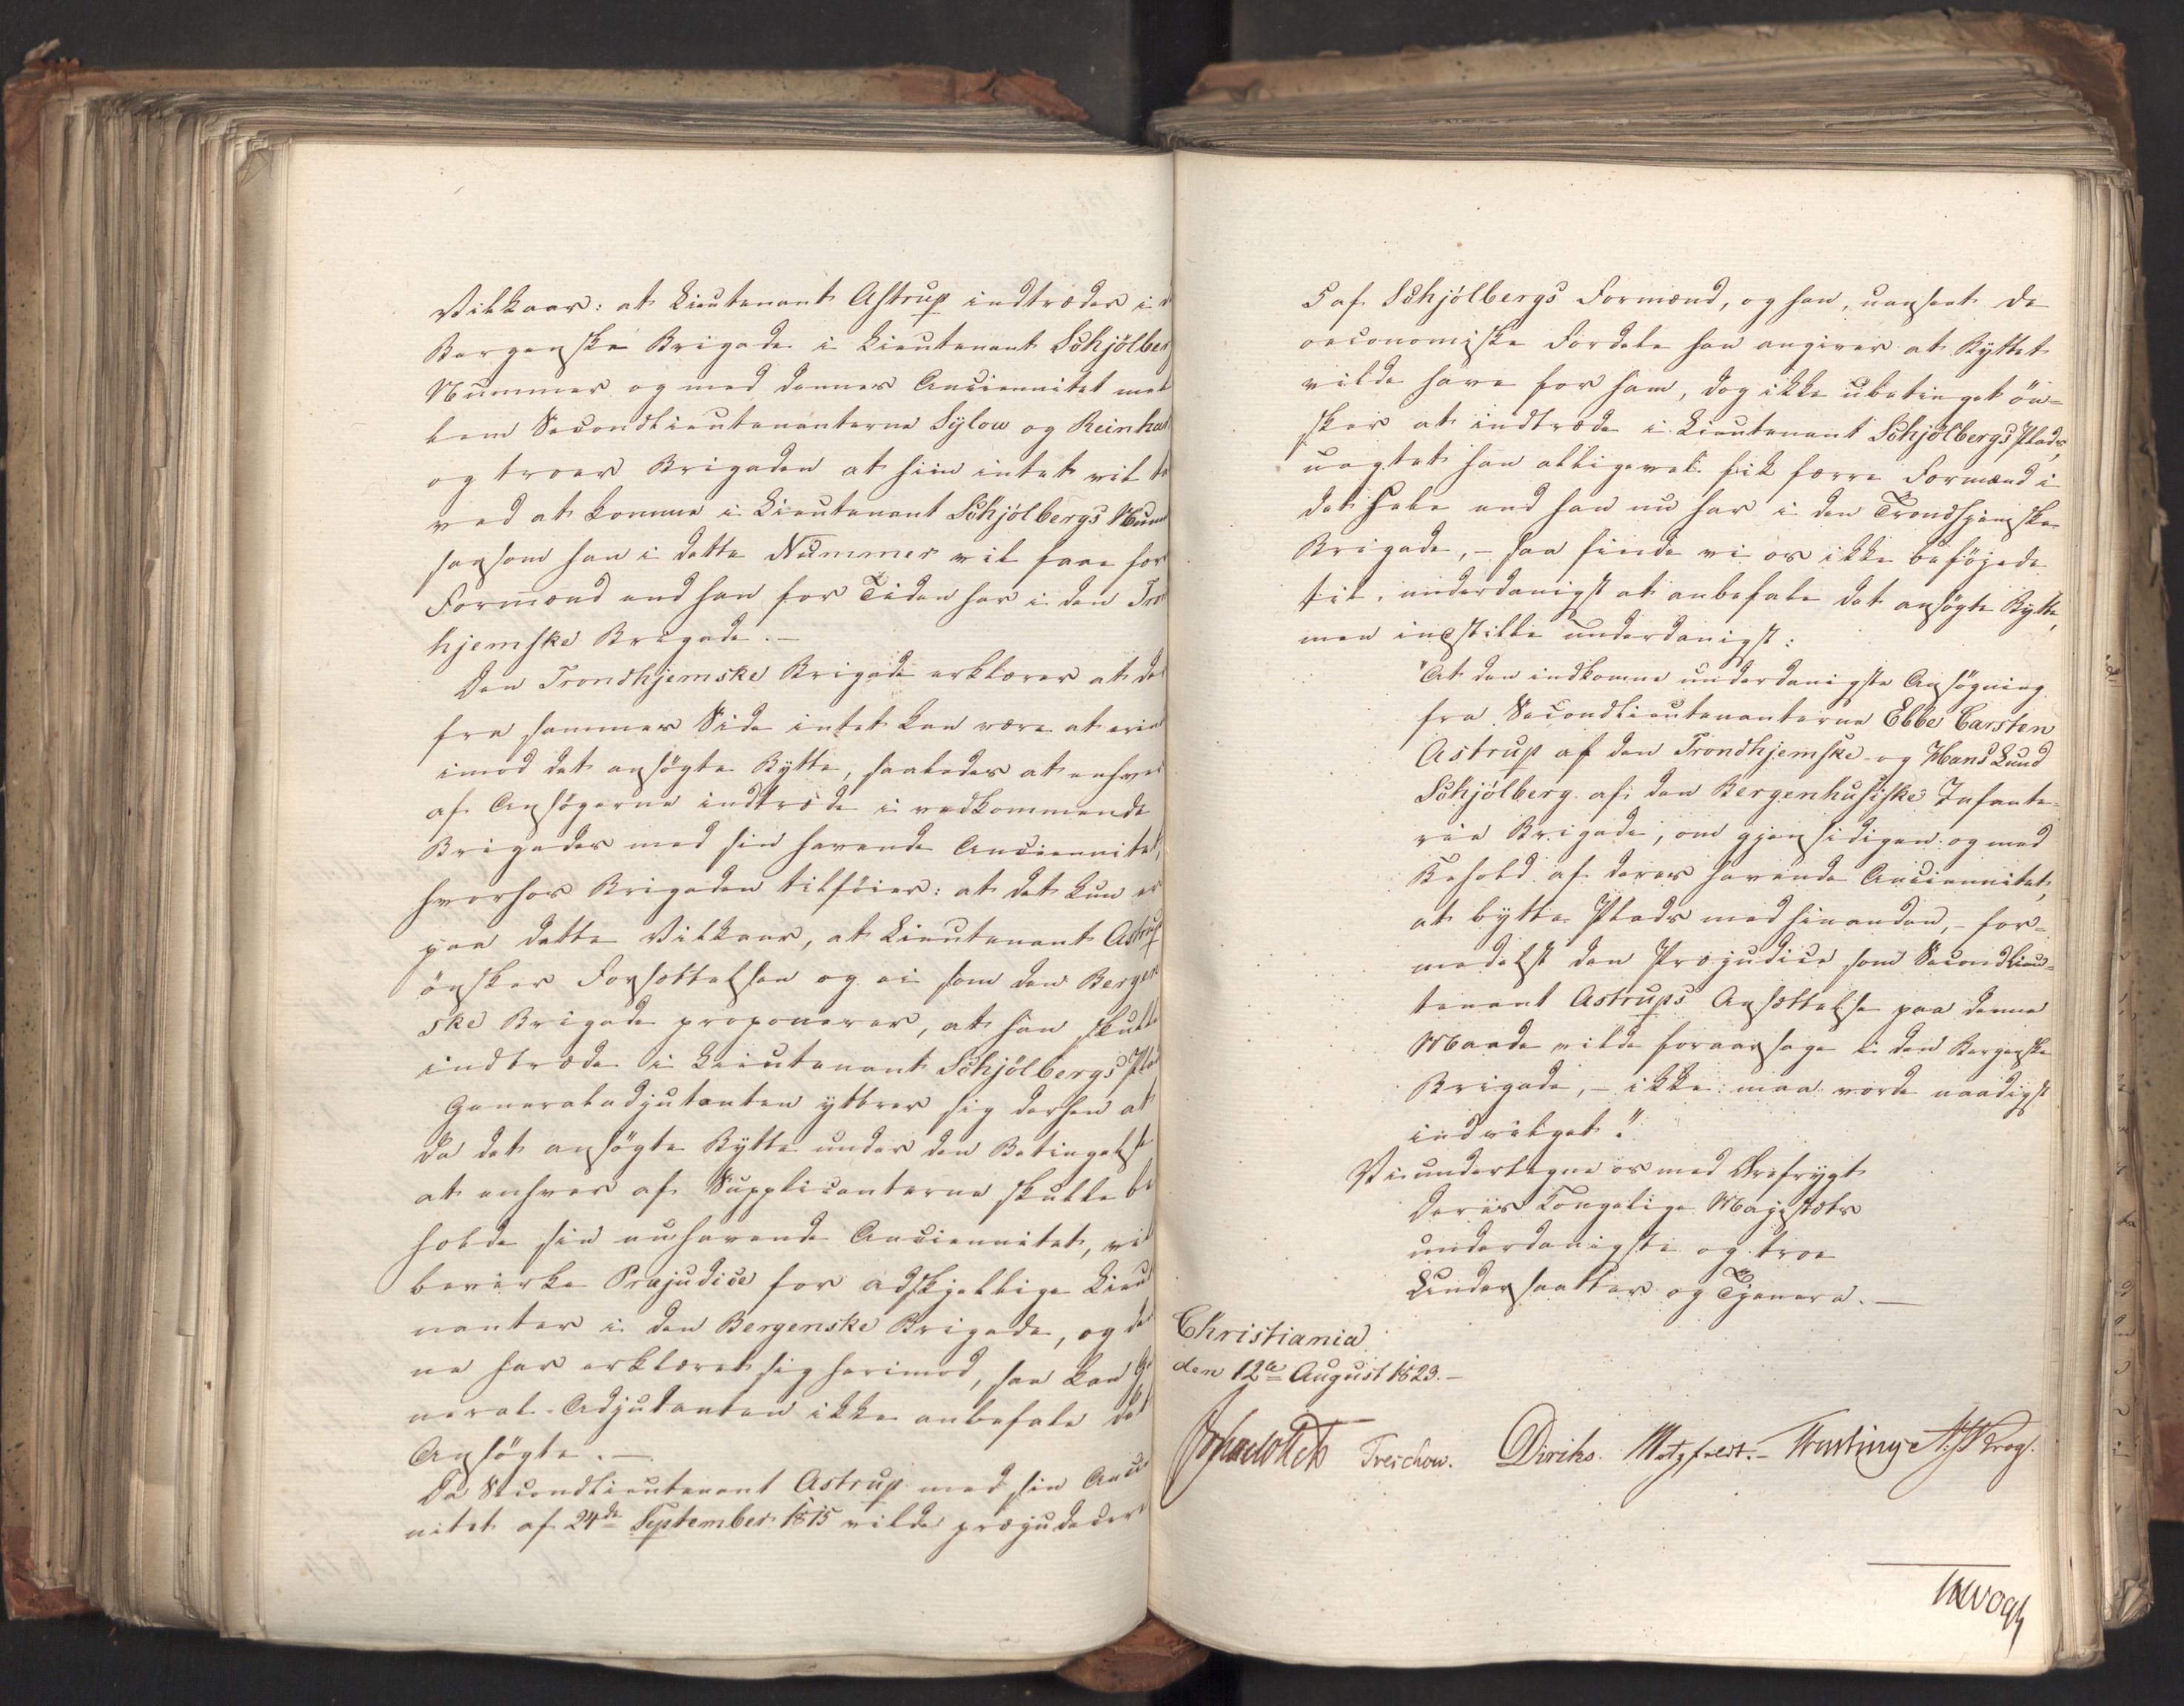 Vilkaar: at Lieutenant Astrup indtræder i d
Bergenske Brigade i Lieutenant Schjölber
Nummer og med dennes Anciennitet mel
lem Secondlieutenanterne Sylow og Reinhar
og troer Brigaden at hiin intet vil ta
ved at komme i Lieutenant Schjölbergs Num
saasom han i dette Nummer vil faae fær
Formænd end han for Tiden har i den Tro
hjemske Brigade.-
Den Trondhjemske Brigade erklærer at de
fra sammes Side intet kan være at erin
imod det ansögte Bytte, saaledes at enhver
af Ansögerne indtræde i vedkommende
Brigader med sin havende Anciennitet,
hvorhos Brigaden tilföier: at det kun er
paa dette Vilkaar, at Lieutenant Astrup
önsker Forsættelsen og ei som den Bergen
ske Brigade proponerer, at han skulle
indtræde i Lieutenant Schjölbergs Pla
Generaladjutanten yttrer sig derhen at
da det ansögte Bytte under den Betingelse
at enhver af Supplicanterne skulle be
holde sin nuhavende Anciennitet, vil
bevirke Præjudice for adskjellige Lieu
nanter i den Bergenske Brigade, og de
ne har erklæret sig herimod, saa kan Ge
neral-Adjutanten ikke anbefale det
Ansögte.-
Da Secondlieutenant Astrup med sin Anci
nitet af 24de September 1815 vilde præjudicere
5 af Schjölbergs Formænd, og han, uanseet de
oeconomiske Fordele han angiver at Byttet
vilde have for ham, dog ikke ubetinget ön=
sker at indtræde i Lieutenant Schjölbergs Plads,
uagtet han alligevel fik færre Formænd i
det Hele end han nu har i den Trondhjemske
Brigade, - saa finde vi os ikke beföjede
til, underdanigst at anbefale det ansögte Bytte,
men indstille underdanigst:
"At den indkomne underdanigste Ansögning
fra Secondlieutenanterne Ebbe Carsten
Astrup af den Trondhjemske- og Hans Lund
Schjölberg af den Bergenhusiske Infante=
rie Brigade, om gjensidigen og med
Behold af deres havende Anciennitet,
at bytte Plads med hinanden, - for=
medelst den Præjudice som Secondlieu=
tenant Astrups Ansættelse paa denne
Maade vilde foraarsage i den Bergenske
Brigade, - ikke maa vorde naadigst
indvilget."
Vi undertegne os med Ærefrygt
Deres Kongelige Majestæts
underdanigste og troe
Undersaatter og Tjenere.-
Christiania
den 12te August 1823.-
Treschow. Diriks. Motzfeldt.-